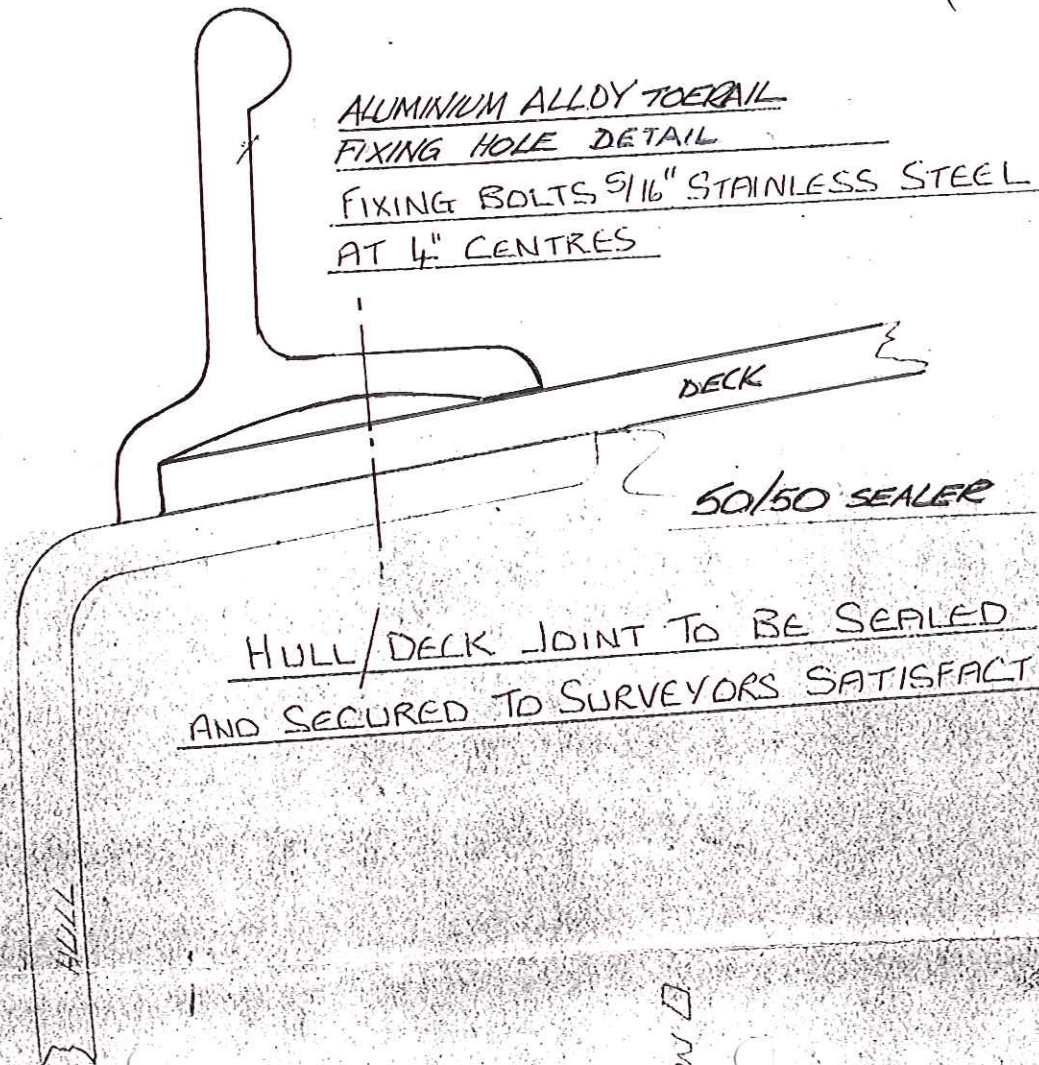 ALUMINIUM ALLOY TOERAIL
FIXING HOLE DETAIL
FIXING BOLTS 5/16" STAINLESS STEEL
AT 4" CENTRES
DECK
50/50 SEALER
HULL/DECK JOINT TO BE SEALED
AND SECURED TO SURVEYORS SATISFACT
HULL